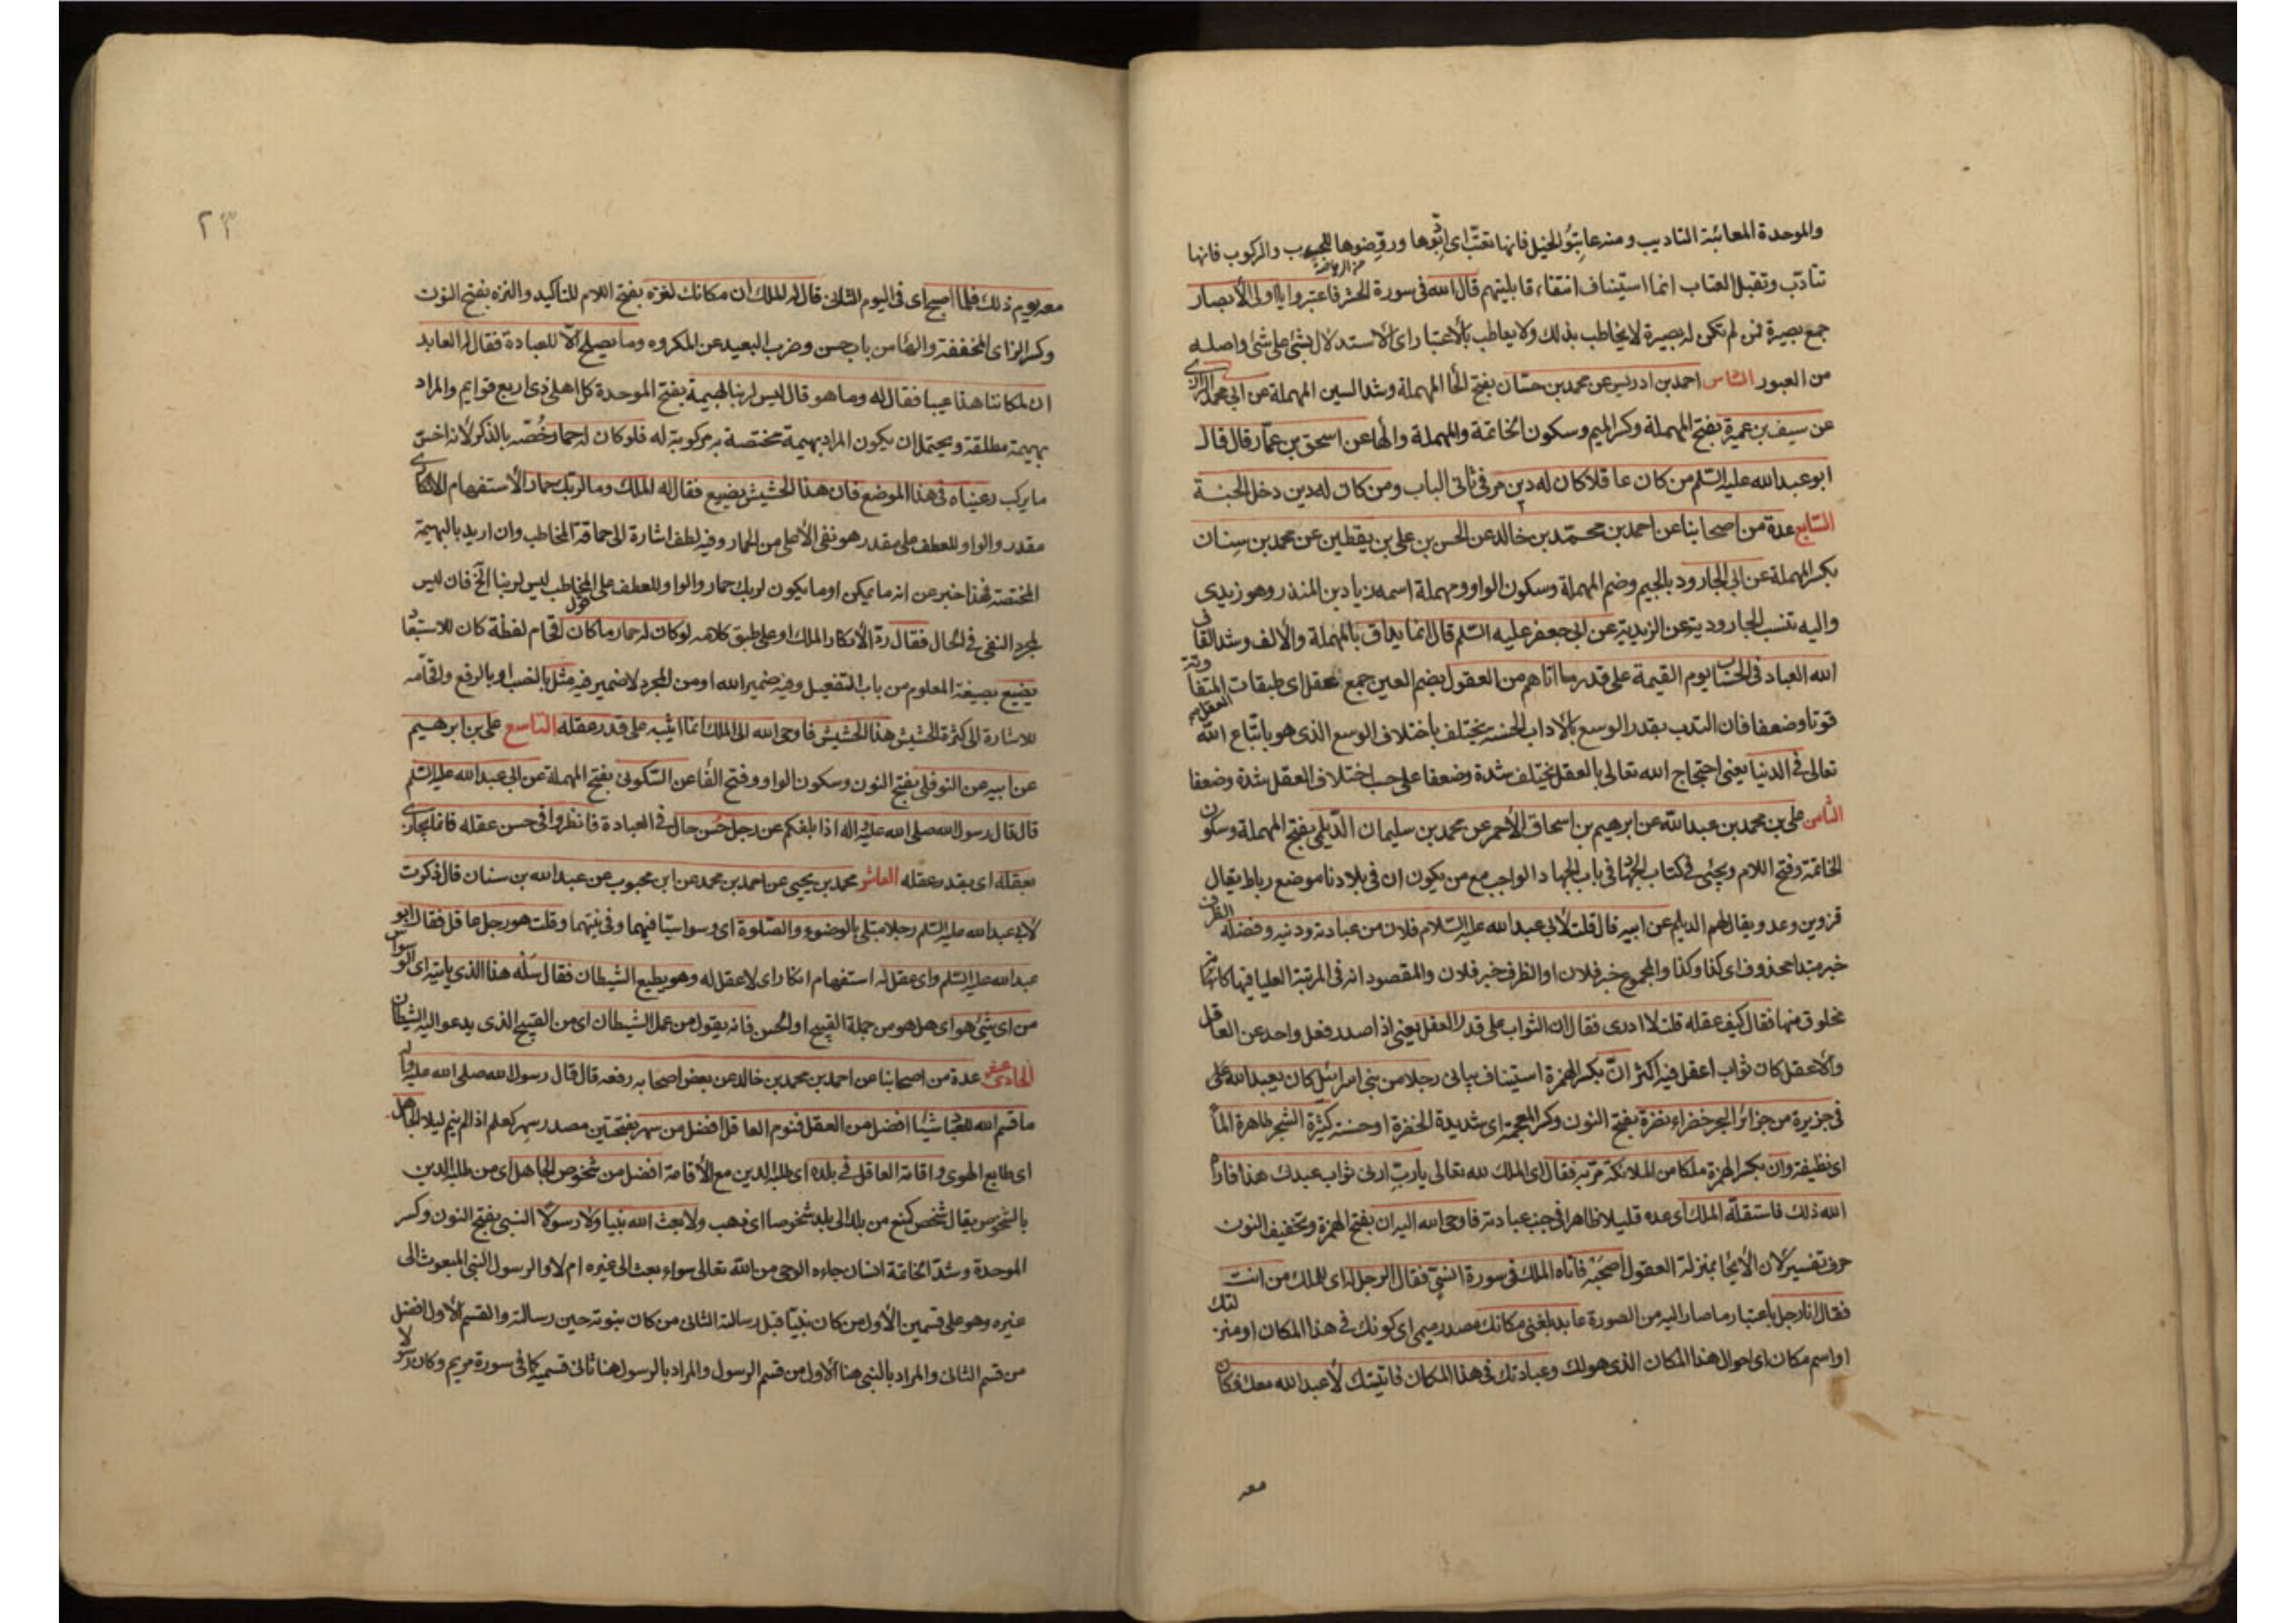 والموحدة المعاتبة التاديب ومنه عاتبوا الخيل فانها تعتب اى ادبوها وروضوها للحرب والركوب فانها
من الرياضة
تتأدب وتقبل العتاب انما استيناف انتقاء قابليتهم قال الله فى سورة الحشر فاعتبروا يا اولى الابصار
جمع بصيرة فمن لم تكن له بصيرة لا يخاطب بذلك ولا يعاطب بالاعتبار اى الاستدلال بشئ على شئ واصله
من العبور السادس احمد بن ادريس عن محمد بن حسّان بفتح الحا المهملة وشد السين المهملة عن ابى محمد الرازى
عن سيف بن عميرة بفتح المهملة وكسر الميم وسكون الخاتمة والمهملة والها عن اسحق بن عمّار قال قال
ابو عبد الله عليه السّلم من كان عاقلا كان له دين مر فى ثانى الباب ومن كان له دين دخل الجنة
السّابع عدة من اصحابنا عن احمد بن محمّد بن خالد عن الحسن بن على بن يقطين عن محمد بن سِنان
بكسر المهملة عن ابى الجارود بالجيم وضم المهملة وسكون الواو ومهملة اسمه زياد بن المنذر وهو زيدى
واليه تنسب الجارودية من الزيدية عن ابى جعفر عليه السّلم قال انما يداق بالمهملة والالف وشد القاف
الله العباد فى الحساب يوم القيمة على قدر ما اتاهم من العقول بضم العين جمع عقل اى طبقات العقل المتفاوتة
قوتا وضعفا فان التدب بقدر الوسع بالاداب الحسنة يختلف باختلاف الوسع الذى هو باتباع الله
تعالى فى الدنيا يعنى احتجاج الله تعالى بالعقل يختلف شدة وضعفا على حسب اختلاف العقل شدة وضعفا
الثامن على بن محمد بن عبد الله عن ابرهيم بن اسحاق الاحمر عن محمد بن سليمان الدّيلمى بفتح المهملة وسكون
الخاتمة وفتح اللام ويجئ فى كتاب الجهاد فى باب الجهاد الواجب مع من يكون ان فى بلادنا موضع رباط يقال
قزوين وعدو يقال لهم الديلم عن ابيه قال قلت لابى عبد الله عليه السّلام فلان من عبادته ودنيه وفضله الظرف
خبر مبتدا محذوف اى كذا وكذا والمجموع خبر فلان او الظرف خبر فلان والمقصود انه فى المرتبة العليا فيها كانه
مخلوق منها فقال كيف عقله قلت لا ادرى فقال ان الثواب على قدر العقل يعنى اذا صدر فعل واحد عن العاقل
والاعقل كان ثواب اعقل فيه اكثر انّ بكسر الهمزة استيناف بيانى رجلا من بنى اسرائيل كان يعبد الله على
فى جزيرة من جزائر البحر خضراء نضرة بفتح النون وكسر المعجمة اى شديدة الخضرة او حسنة كثيرة الشجر ظاهرة الماء
اى نظيفة وان بكسر الهمزة ملكا من الملائكة مر به فقال اى الملك لله تعالى يا ربّ ارنى ثواب عبدك هذا فاراه
الله ذلك فاستقلّه الملك اى عده قليلا ظاهرا فى جنب عبادته فاوحى الله اليه ان بفتح الهمزة وتخفيف النون
حرف تفسير لان الايحا بمنزلة العقول اصحبه فاتاه الملك فى سورة انسى فقال الرجل له اى للملك من انت
فقال انا رجل باعتبار ما صار اليه من الصورة عابد بلغنى مكانك مصدر ميمى اى كونك فى هذا المكان او منزلتك
او اسم مكان اى احوال هذا المكان الذى هو لك وعبادتك فى هذا المكان فاتيتك لاعبد الله معك فكان
معه
٢٣
معه يوم ذلك فلما اصبح اى فى اليوم الثانى قال له الملك ان مكانك لنزه بفتح اللام للتاكيد والنزه بفتح النون
وكسر الزاى المخففة والها من باب حسن وضرب البعيد عن المكروه وما يصلح الّا للعبادة فقال له العابد
ان لمكاننا هذا عيبا فقال له وما هو قال ليس لربنا بهيمة بفتح الموحدة كل اهلى ذى اربع قوايم والمراد
بهيمة مطلقة ويحتمل ان يكون المراد بهيمة مختصة به مركوبة له فلو كان له حمار وخُصّه بالذكر لانه اخسّ
ما يركب رعيناه فى هذا الموضع فان هذا الحشيش يضيع فقال له الملك وما لربك حمار الاستفهام الانكارى
مقدر والواو للعطف على مقدر هو نفى الاعلى من الحمار وفيه لطف اشارة الى حماقة المخاطب وان اريد بالبهيمة
المختصة فهذا خبر عن انه ما يمكن او ما يكون لربك حمار والواو للعطف على قول المخاطب ليس لربنا الخ فان ليس
لمجرد النفى فى الحال فقال ردّ الانكار الملك او على طبق كلامه لو كان له حمار ما كان اقحام لفظة كان للاستبقا
يضيع بصيغة المعلوم من باب التفعيل وفيه ضمير الله او من المجرد لا ضمير فيه مثل بالنصب او بالرفع واقحامه
للاشارة الى كثرة الحشيش هذا الحشيش فاوحى الله الى الملك انما اثيبه على قدر عقله التاسع على بن ابرهيم
عن ابيه عن النوفلى بفتح النون وسكون الواو وفتح الفا عن السّكونى بفتح المهملة عن ابى عبد الله عليه السّلم
قال قال رسول الله صلى الله عليه واله اذا بلغكم عن رجل حُسن حال فى العبادة فانظروا فى حسن عقله فانما يجازى
بعقله اى بقدر عقله العاشر محمد بن يحيى عن احمد بن محمد عن ابن محبوب عن عبد الله بن سنان قال ذكرت
لابى عبد الله عليه السّلم رجلا مبتلى بالوضوء والصّلوة اى وسواسيّا فيهما وفى نيتهما وقلت هو رجل عاقل فقال ابو
عبد الله عليه السّلم واى عقل له استفهام انكار اى لا عقل له وهو يطيع الشيطان فقال سَلْه هذا الذى ياتيه اى الوسواس
من اى شئ هو اى هل هو من جملة القبيح او الحسن فانه يقول من عمل الشيطان اى من القبيح الذى يدعو اليه الشيطان
الحادى عشر عدة من اصحابنا عن احمد بن محمد بن خالد عن بعض اصحابه رفعه قال قال رسول الله صلى الله عليه واله
ما قسم الله للعباد شيئا افضل من العقل فنوم العاقل افضل من سهر بفتحتين مصدر سهر كعلم اذا لم ينم ليلا الجاهل
اى طابع الهوى واقامة العاقل فى بلده اى طلبه الدين مع الاقامة افضل من شخوص الجاهل اى من طلبه الدين
بالشخوص يقال شخص كمنع من بلد الى بلد شخوصا اى ذهب ولا بعث الله نبيا ولا رسولا النبى بفتح النون وكسر
الموحدة وشدّ الخاتمة انسان جاءه الوحى من الله تعالى سواء بعث الى غيره ام لا والرسول النبى المبعوث الى
غيره وهو على قسمين الاول من كان نبيّا قبل رسالته الثانى من كان نبوته حين رسالته والقسم الاول افضل
من قسم الثانى والمراد بالنبى هنا الاول من قسم الرسول والمراد بالرسول هنا ثانى قسميه كما فى سورة مريم وكان رسولا